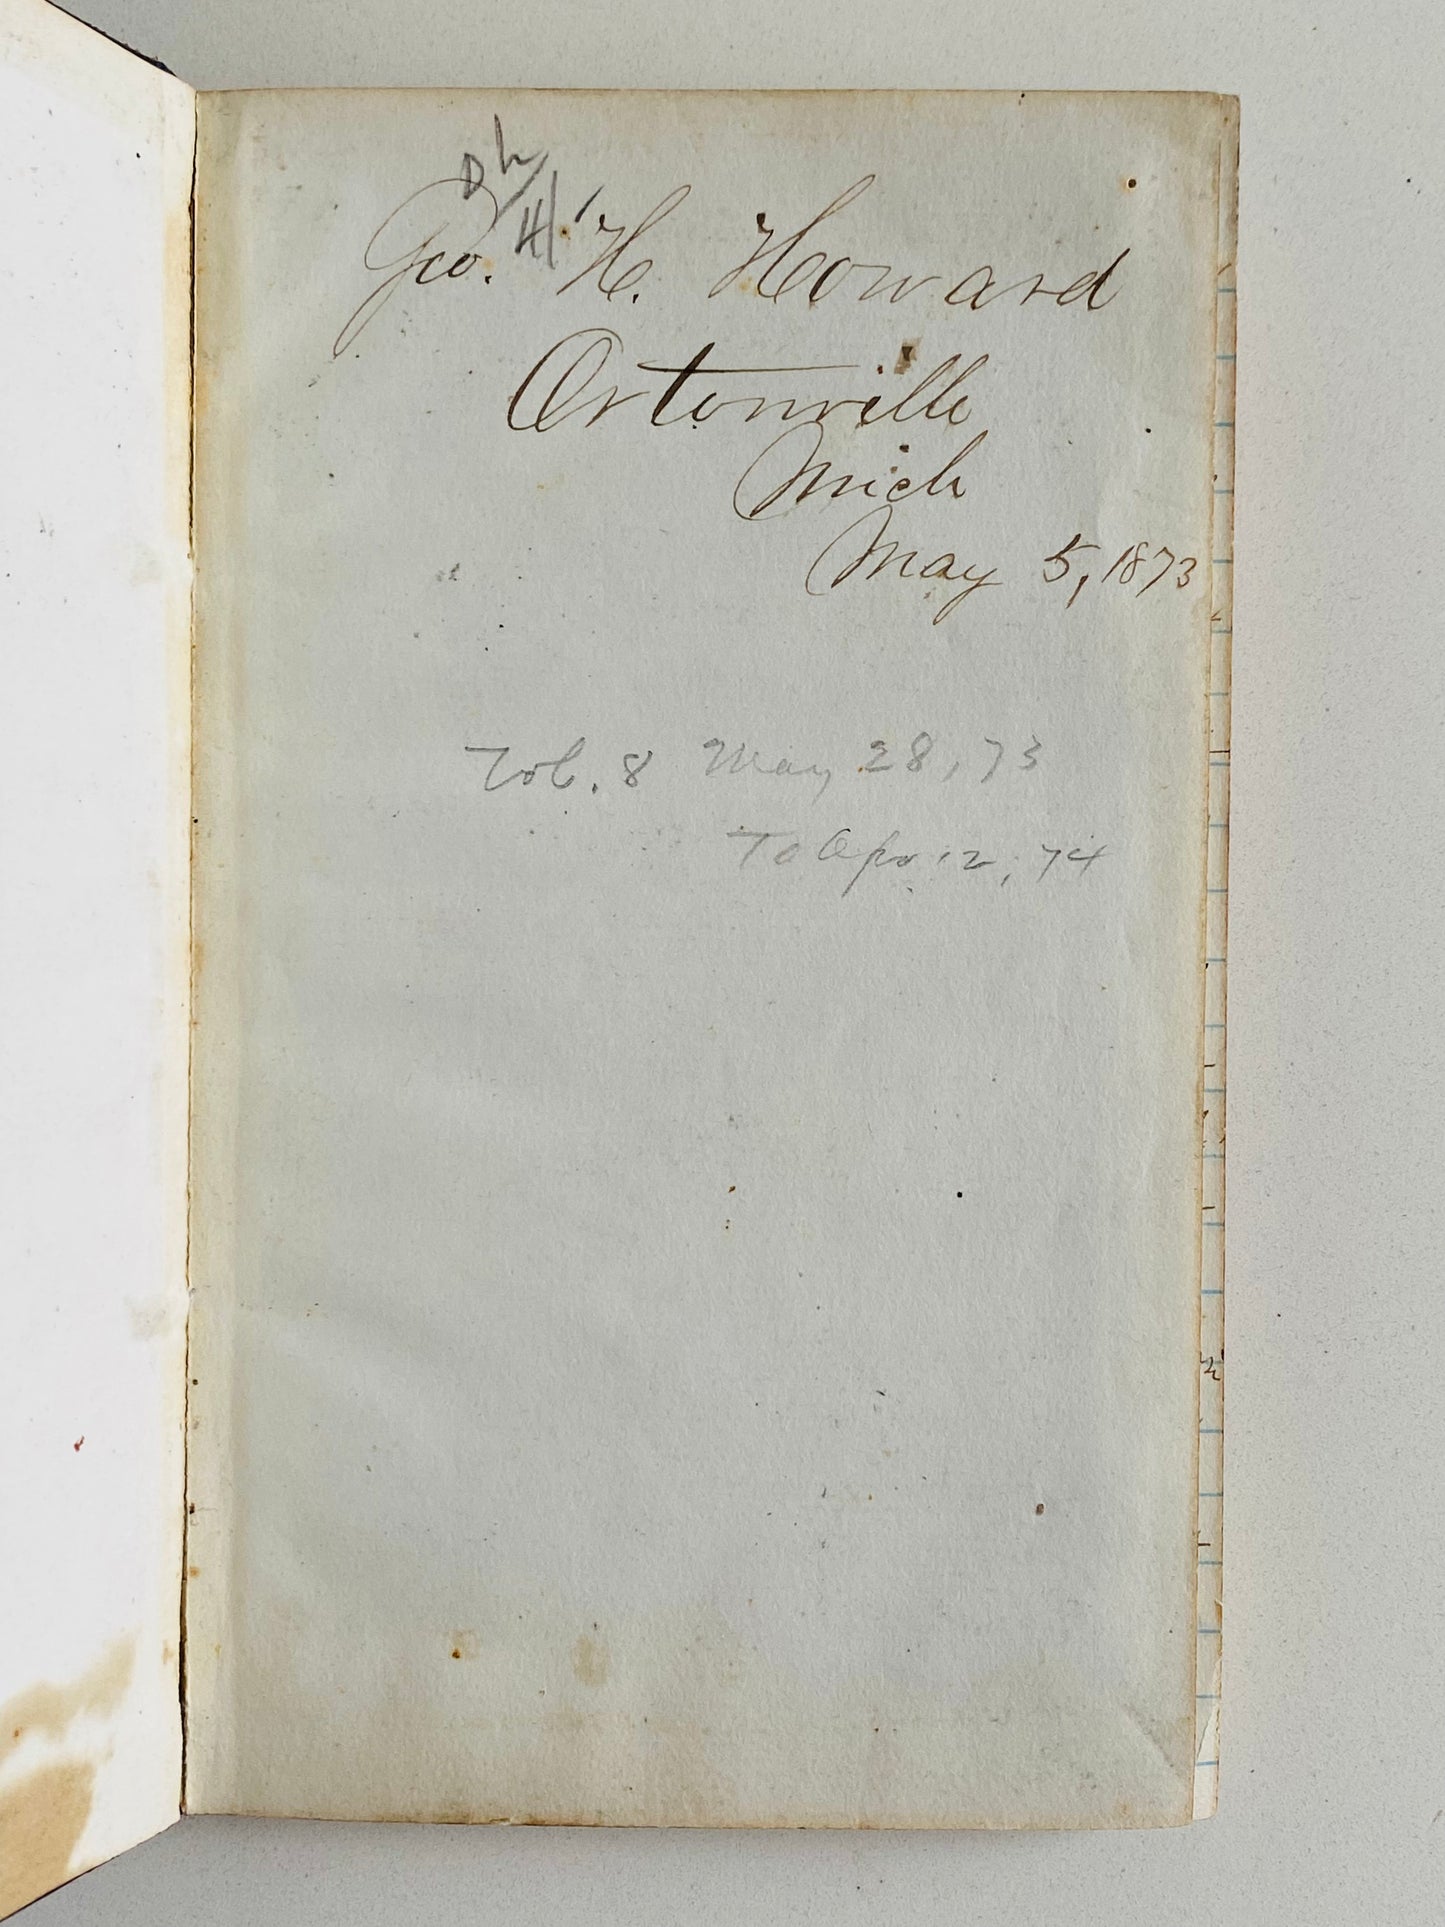 Geo. H. Howard
Ortonville
Mich
May 5, 1873
Vol. 8 May 28, 73
To Apr 12, 74